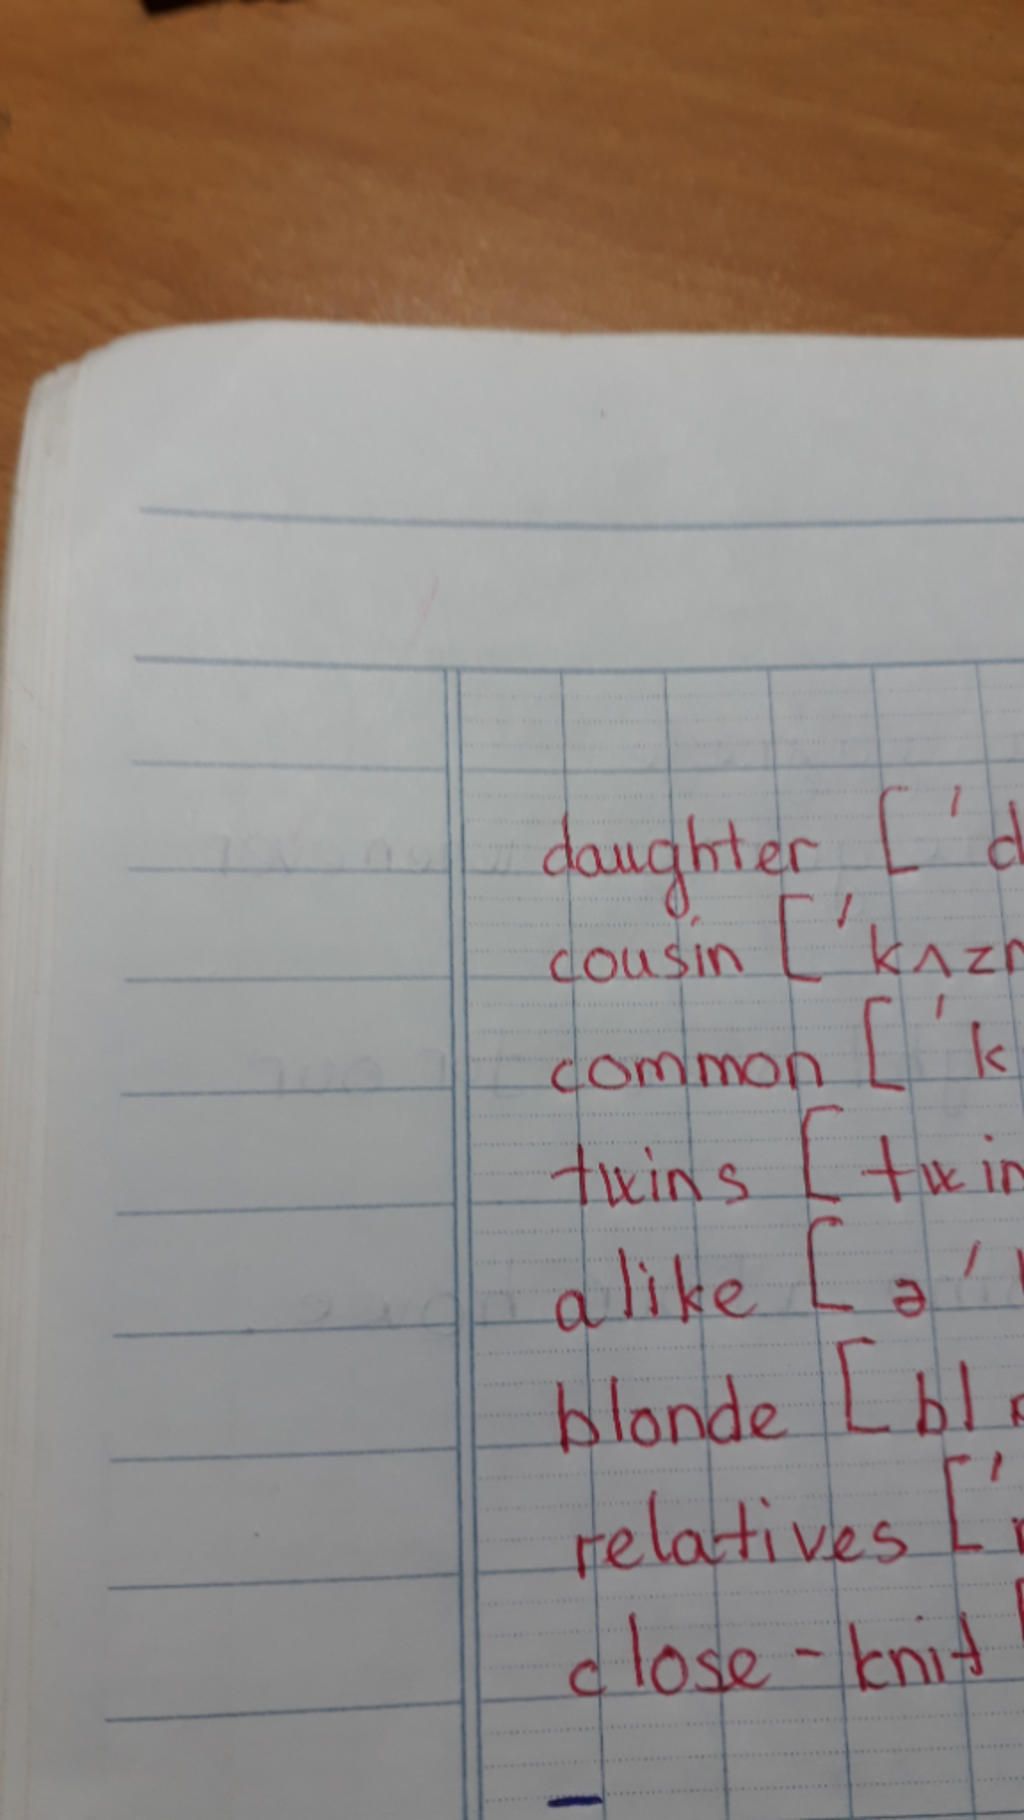 daughter ['d
cousin ['kʌzn
common ['k
twins [twin
alike [ə'l
blonde [bl
relatives ['r
close-knit [